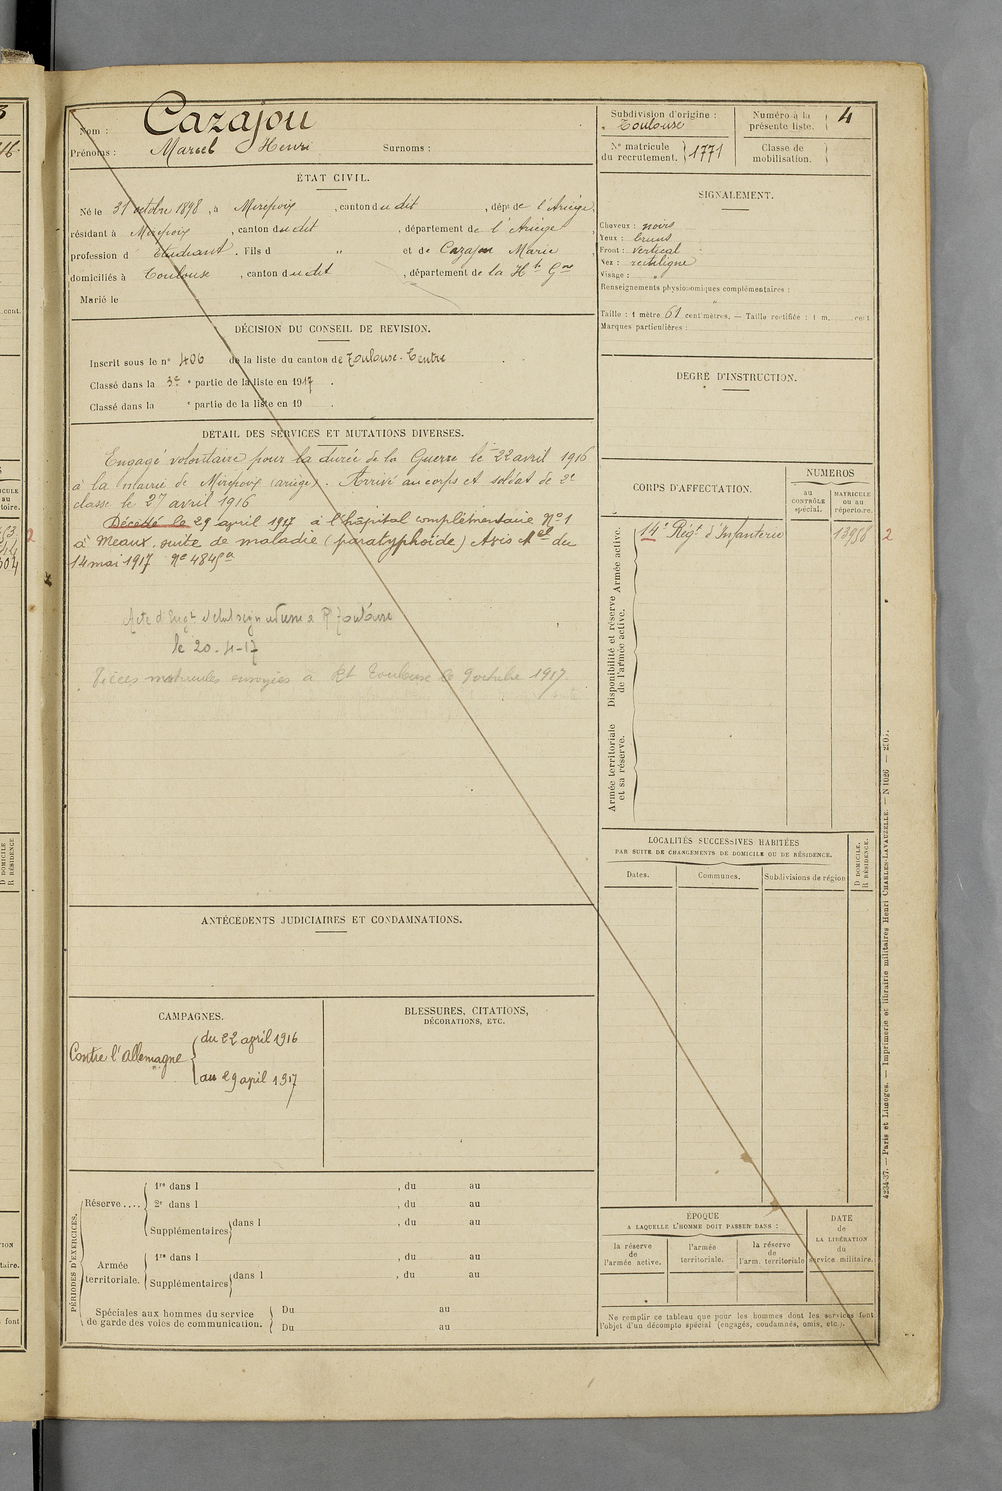 Nom : Cazajou
Prénoms : Marcel Henri Surnoms :
Subdivision d'origine :
Toulouse
Numéro à la
présente liste. 4
No matricule
du recrutement. 1771
Classe de
mobilisation.
ÉTAT CIVIL.
Né le 31 octobre 1898, à Mirepoix, canton du dit, dépt de l'Ariège,
résidant à Mirepoix, canton du dit, département de l'Ariège
profession d'étudiant. Fils d " et de Cazajou Marie
domiciliés à Toulouse, canton du dit, département de la Hte Gne
Marié le
DÉCISION DU CONSEIL DE REVISION.
Inscrit sous le no 406 de la liste du canton de Toulouse-Centre
Classé dans la 3e partie de la liste en 1917.
Classé dans la e partie de la liste en 19 .
DÉTAIL DES SERVICES ET MUTATIONS DIVERSES.
Engagé volontaire pour la durée de la Guerre le 22 avril 1916
à la mairie de Mirepoix (ariège). Arrivé au corps et soldat de 2e
classe le 27 avril 1916
Décédé le 29 april 1917 à l'hôpital complémentaire No 1
à Meaux, suite de maladie (paratyphoïde) Avis
14 mai 1917 No 4845
le 20-4-17
Pièces matricules envoyées à Rt Toulouse le 9 octobre 1917.
ANTÉCÉDENTS JUDICIAIRES ET CONDAMNATIONS.
CAMPAGNES.
Contre l'Allemagne
du 22 april 1916
au 29 april 1917
BLESSURES, CITATIONS,
DÉCORATIONS, ETC.
PÉRIODES D'EXERCICES.
Réserve....
1re dans l , du au
2e dans l , du au
Supplémentaires dans l , du au
Armée
territoriale.
1re dans l , du au
Supplémentaires dans l , du au
Spéciales aux hommes du service
de garde des voies de communication.
Du au
Du au
SIGNALEMENT.
Cheveux : noirs
Yeux : bruns
Front : vertical
Nez : rectiligne
Visage : "
Renseignements physionomiques complémentaires :
Taille : 1 mètre 61 centimètres. — Taille rectifiée : 1 m. cent
Marques particulières :
DEGRÉ D'INSTRUCTION.
CORPS D'AFFECTATION.
NUMÉROS
au
CONTRÔLE
spécial.
MATRICULE
ou au
répertoire.
Armée active.
14e Régt d'Infanterie 13958 2
Disponibilité et réserve
de l'armée active.
Armée territoriale
et sa réserve.
LOCALITÉS SUCCESSIVES HABITÉES
PAR SUITE DE CHANGEMENTS DE DOMICILE OU DE RÉSIDENCE.
Dates. Communes. Subdivisions de région
D DOMICILE.
R RÉSIDENCE.
ÉPOQUE
A LAQUELLE L'HOMME DOIT PASSER DANS :
la réserve
de
l'armée active.
l'armée
territoriale.
la réserve
de
l'arm. territoriale
DATE
de
LA LIBÉRATION
du
service militaire.
Ne remplir ce tableau que pour les hommes dont les services font
l'objet d'un décompte spécial (engagés, condamnés, omis, etc.).
4234-37. — Paris et Limoges. — Imprimerie et librairie militaires Henri CHARLES-LAVAUZELLE. — N 1026